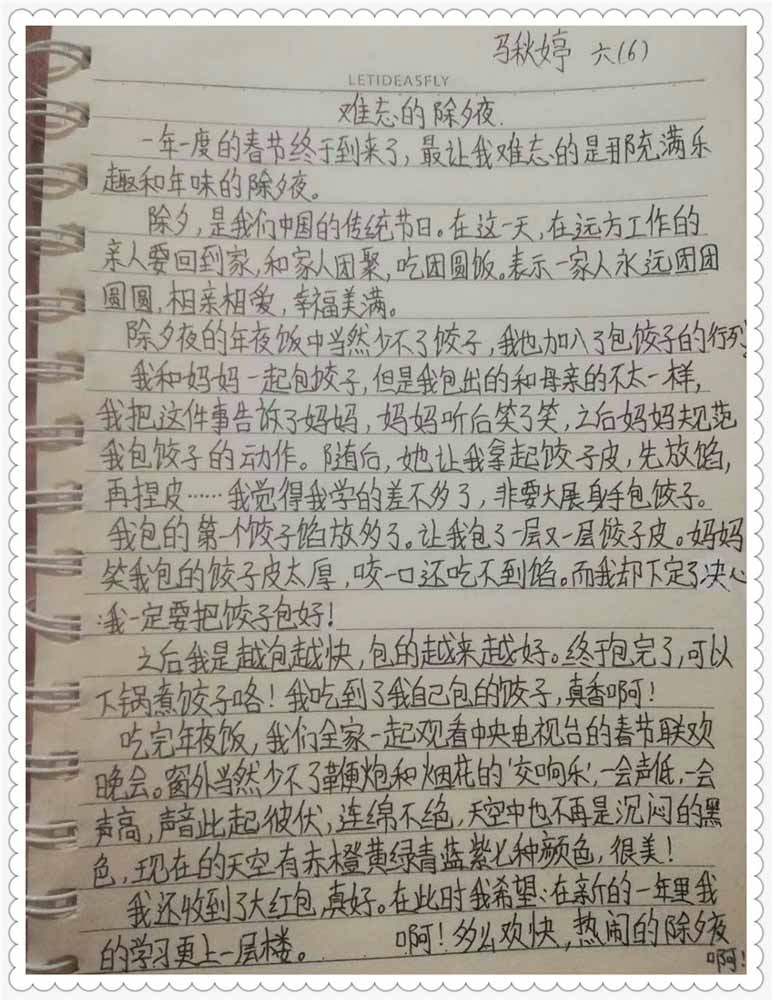 马秋婷 六(6)
LETIDEASFLY
难忘的除夕夜.
一年一度的春节终于到来了,最让我难忘的是那充满乐
趣和年味的除夕夜。
除夕,是我们中国的传统节日。在这一天,在远方工作的
亲人要回到家,和家人团聚,吃团圆饭。表示一家人永远团团
圆圆,相亲相爱,幸福美满。
除夕夜的年夜饭中当然少不了饺子,我也加入了包饺子的行列
我和妈妈一起包饺子,但是我包出的和母亲的不太一样,
我把这件事告诉了妈妈,妈妈听后笑了笑,之后妈妈规范
我包饺子的动作。随后,她让我拿起饺子皮,先放馅,
再捏皮……我觉得我学的差不多了,非要大展身手包饺子。
我包的第一个饺子馅放多了。让我包了一层又一层饺子皮。妈妈
笑我包的饺子皮太厚,咬一口还吃不到馅。而我却下定了决心
:我一定要把饺子包好!
之后我是越包越快,包的越来越好。终于包完了,可以
下锅煮饺子咯!我吃到了我自己包的饺子,真香啊!
吃完年夜饭,我们全家一起观看中央电视台的春节联欢
晚会。窗外当然少不了鞭炮和烟花的'交响乐',一会声低,一会
声高,声音此起彼伏,连绵不绝,天空中也不再是沉闷的黑
色,现在的天空有赤橙黄绿青蓝紫七种颜色,很美!
我还收到了大红包,真好。在此时我希望:在新的一年里我
的学习更上一层楼。 啊!多么欢快,热闹的除夕夜
啊!